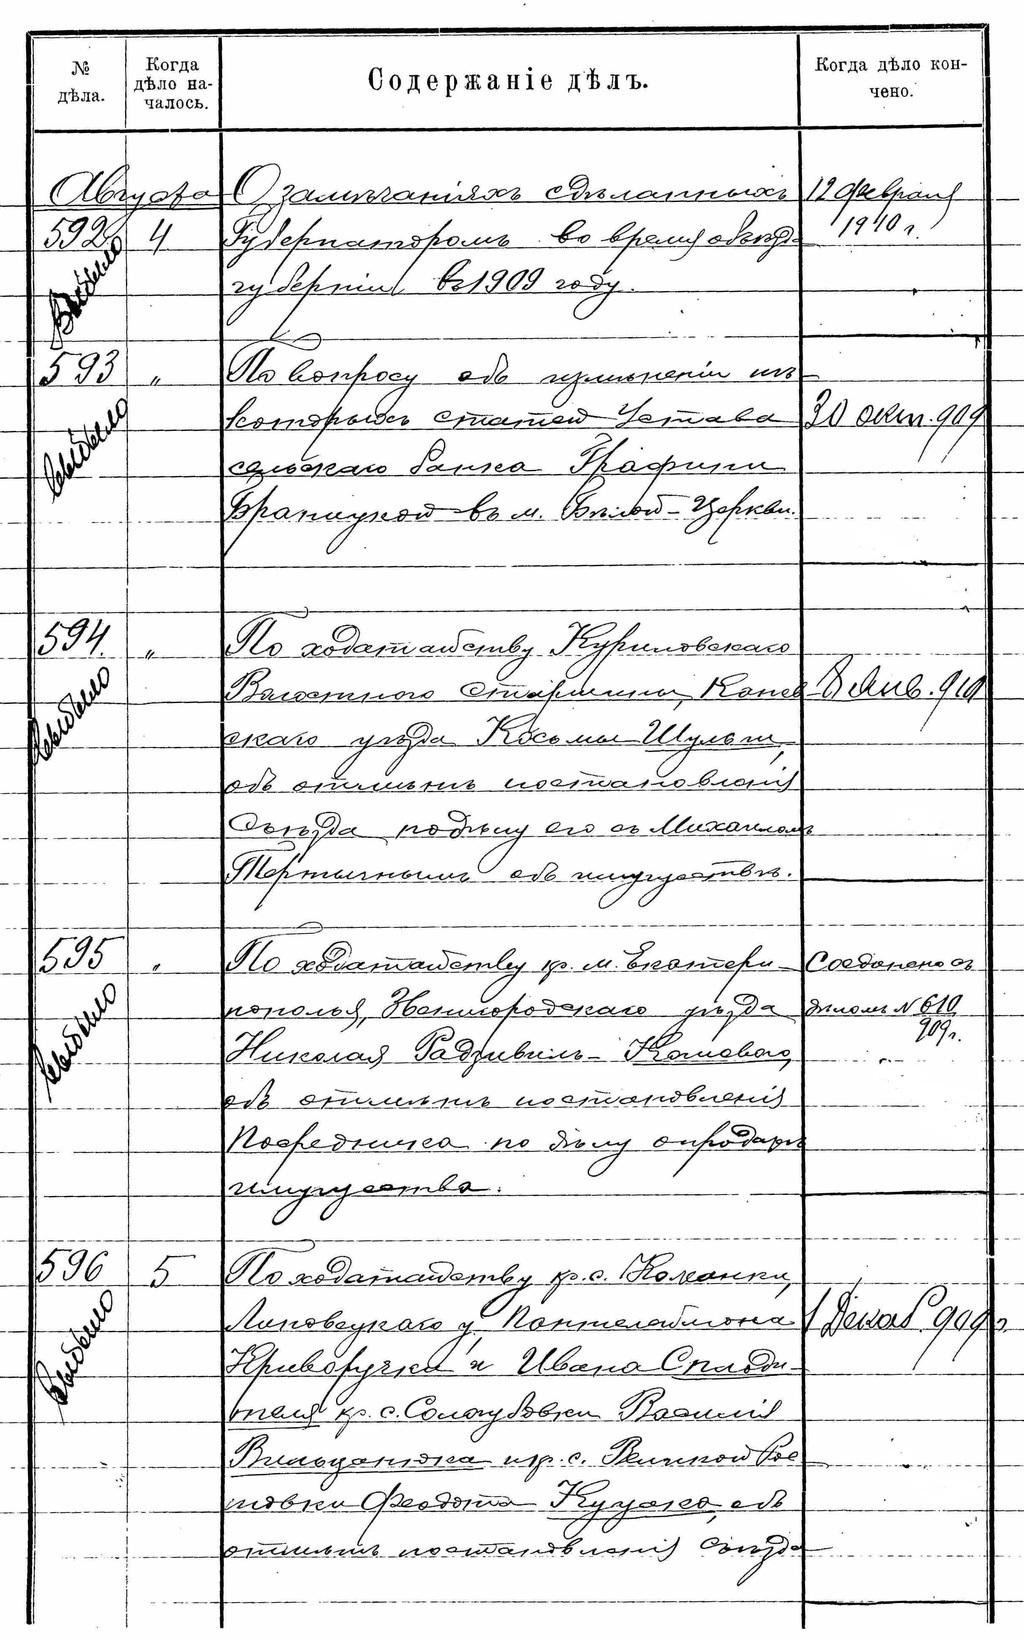 № дѣла.
Когда дѣло началось.
Содержаніе дѣлъ.
Когда дѣло кончено.
Августа
592 4 О замѣчаніяхъ сдѣланныхъ 12 февраля
Губернаторомъ во время объѣзда 1910 г.
губерніи въ 1909 году.
Выбыло
593 " По вопросу объ измѣненіи нѣ-
которыхъ статей Устава 30 окт. 909
сельскаго банка Графини
Браницкой въ м. Бѣлой-Церкви.
Выбыло
594. " По ходатайству Куриловскаго
Волостного Старшины, Канев- 8 Янв. 910
скаго уѣзда Косьмы Шульги,
объ отмѣнѣ постановленія
Съѣзда по дѣлу его съ Михаиломъ
Тертычнымъ объ имуществѣ.
Выбыло
595 " По ходатайству кр. м. Екатери- Соединено съ
нополья, Звенигородскаго уѣзда дѣломъ № 610
Николая Радзивилъ- 909 г.
объ отмѣнѣ постановленія
Посредника по дѣлу о продажѣ
имущества.
Выбыло
596 5 По ходатайству кр. с. Кожанки,
Липовецкаго у. Пантелеймона 1 Декаб. 909 г.
Криворучки и Ивана Сплоди-
теля кр. с. Сологубовки Василія
кр. с. Великой Рос-
товки Феодота объ
отмѣнѣ постановленія Съѣзда
Выбыло